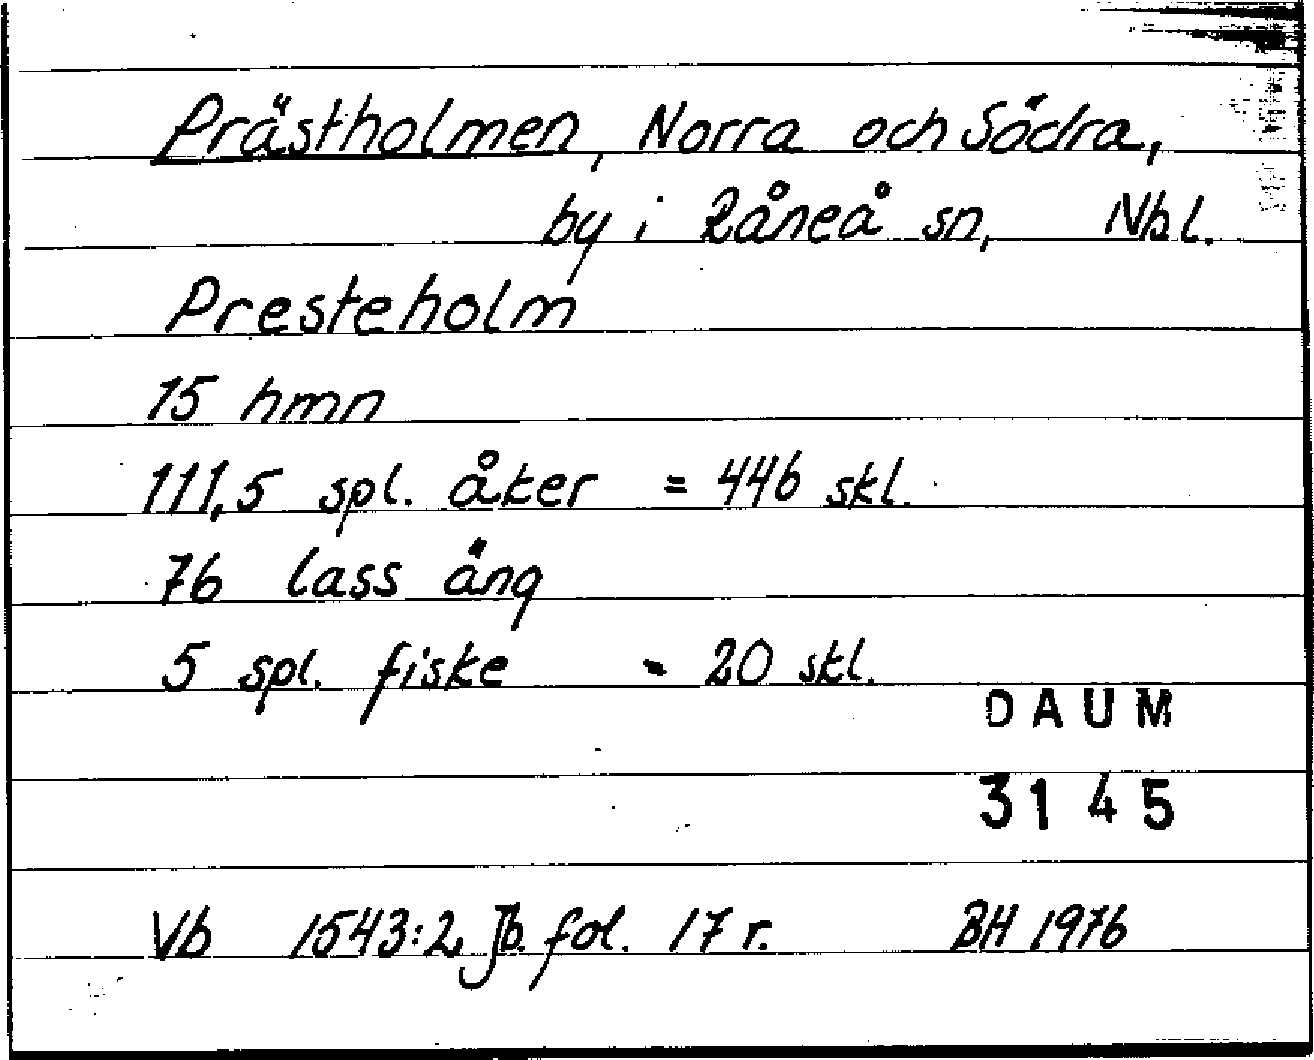 Prästholmen, Norra och Södra,
by i Råneå sn, Nbl.
Presteholm
15 hmn
111,5 spl. åker = 446 skl.
76 lass äng
5 spl. fiske = 20 skl.
DAUM
3145
Vb 1543:2, Jb. fol. 17 r. BH 1976